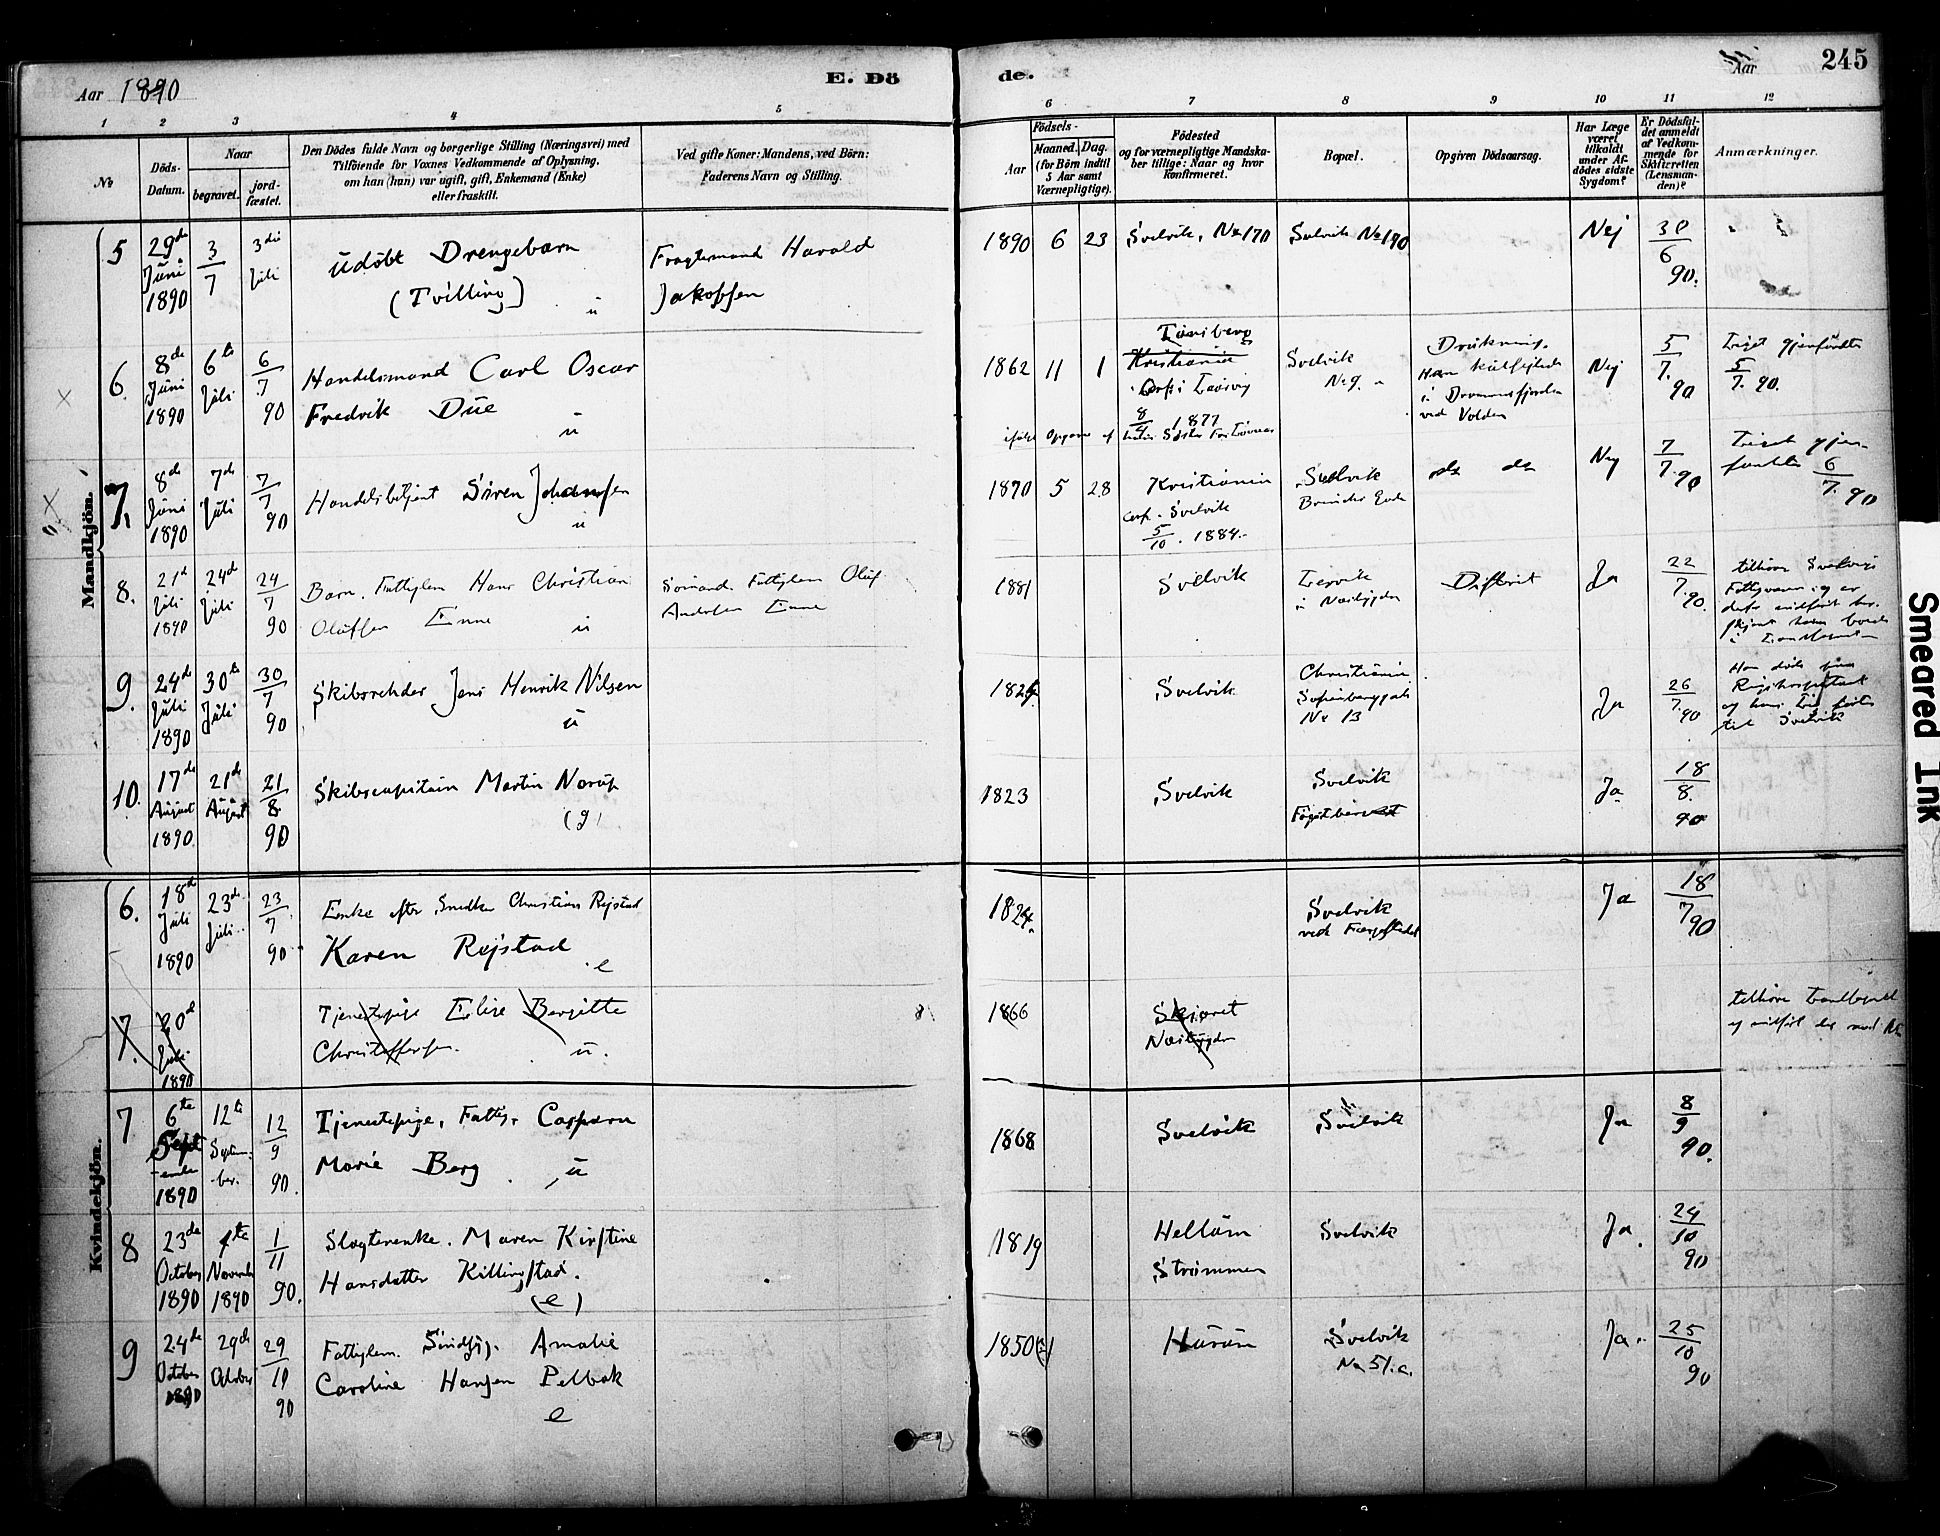 Aar 1890
E. Dö
de.
Aar
245
1 2 3 4 5 6 7 8 9 10 11 12
No
Döds-
Datum.
Naar
begravet.
jord-
fæstet.
Den Dödes fulde Navn og borgerlige Stilling (Næringsvei) med
Tilföiende for Voxnes Vedkommende af Oplysning,
om han (hun) var ugift, gift, Enkemand (Enke)
eller fraskilt.
Ved gifte Koner: Mandens, ved Börn:
Faderens Navn og Stilling.
Födsels-
Aar
Maaned. Dag.
(for Börn indtil
5 Aar samt
Værnepligtige).
Födested
og for værnepligtige Mandska-
ber tillige: Naar og hvor
Konfirmeret.
Bopæl.
Opgiven Dödsaarsag.
Har Læge
været
tilkaldt
under Af-
dödes sidste
Sygdom?
Er Dödsfal-
det anmeldt
af Vedkom-
mende for
Skifteretten
(Lensman-
den)?
Anmærkninger.
Mandkjön.
5
29de
Juni
1890
3
7
3die
Juli
udöbt Drengebarn
(Tvilling) u
Fragtemand Harald
Jakobsen
1890 6 23
Svelvik, No 170
Svelvik No 170
Nej
30
6
90.
6.
8de
Juni
1890
6te
Juli
6
7
90
Handelsmand Carl Oscar
Fredrik Due
u
1862 11 1
Tönsberg
Kristiania
8
1877
Svelvik
No 9.
Drukning.
Han kulseilede
i Drammensfjorden
ved Volden
Nej
5
7.
90
Liget gjenfundet
5
7. 90.
7.
8de
Juni
1890
7de
Juli
7
7
90
Handelsbetjent Sören Johansen
u
1870 5 28
Kristiania
Conf. Svelvik
5
10. 1884.
Svelvik
do do
Nej
7
7. 90
Liget gjen-
fundet 6
7. 90
8.
21de
Juli
1890
24de
Juli
24
7
90
Barn, Fattiglem Hans Christian
Olufsen Enne u
Sömand. Fattiglem Oluf
Andersen Enne
1881
Svelvik
i Nesbygden
Difterit
Ja
22
7. 90.
tilhörer Svelvigs
9.
24de
Juli
1890
30te
Juli
30
7
90
Skibsrehder Jens Henrik Nilsen
u
1824.
Svelvik
Christiania
Sofienberggade
No 13
Ja
26
7. 90
Han döde paa
Rigshospitalet
og hans Lig förtes
til Svelvik
10.
17de
August
1890
21de
August
21
8
90
Skibscapitain Martin Norup
(g)
1823
Svelvik
Svelvik
Ja
18
8.
90
Kvindekjön.
6.
18de
Juli
1890
23de
Juli
23
7
90
Enke efter Snedker Christian Rejstad
Karen Rejstad
e
1824.
Svelvik
ved Færgestedet
Ja
18
7 90
7.
20de
Juli
1890
Tjenestepige Elise Bergitte
Christoffersen. u.
1866
Skjæret
Nesbygden
7
6te
Sept
ember
1890
12te
Septem-
ber.
12
9
90.
Tjenestepige, Fattigl. Caspara
Marie Berg u
1868
Svelvik
Svelvik
Ja
8
9
90.
8
23de
October
1890
1ste
November
1890
1
11
90.
Slagterenke. Maren Kirstine
Hansdatter Killingstad.
(e)
1819
Hellum
Strömmen
Svelvik
Ja.
24
10
90
9
24de
October
1890
29de
October
29
10
90
Fattiglem. Amalie
Caroline Hansen Pelbak
e
1850(?)
Hurum
Svelvik
No 51.a.
Ja
25
10
90
Smeared Ink